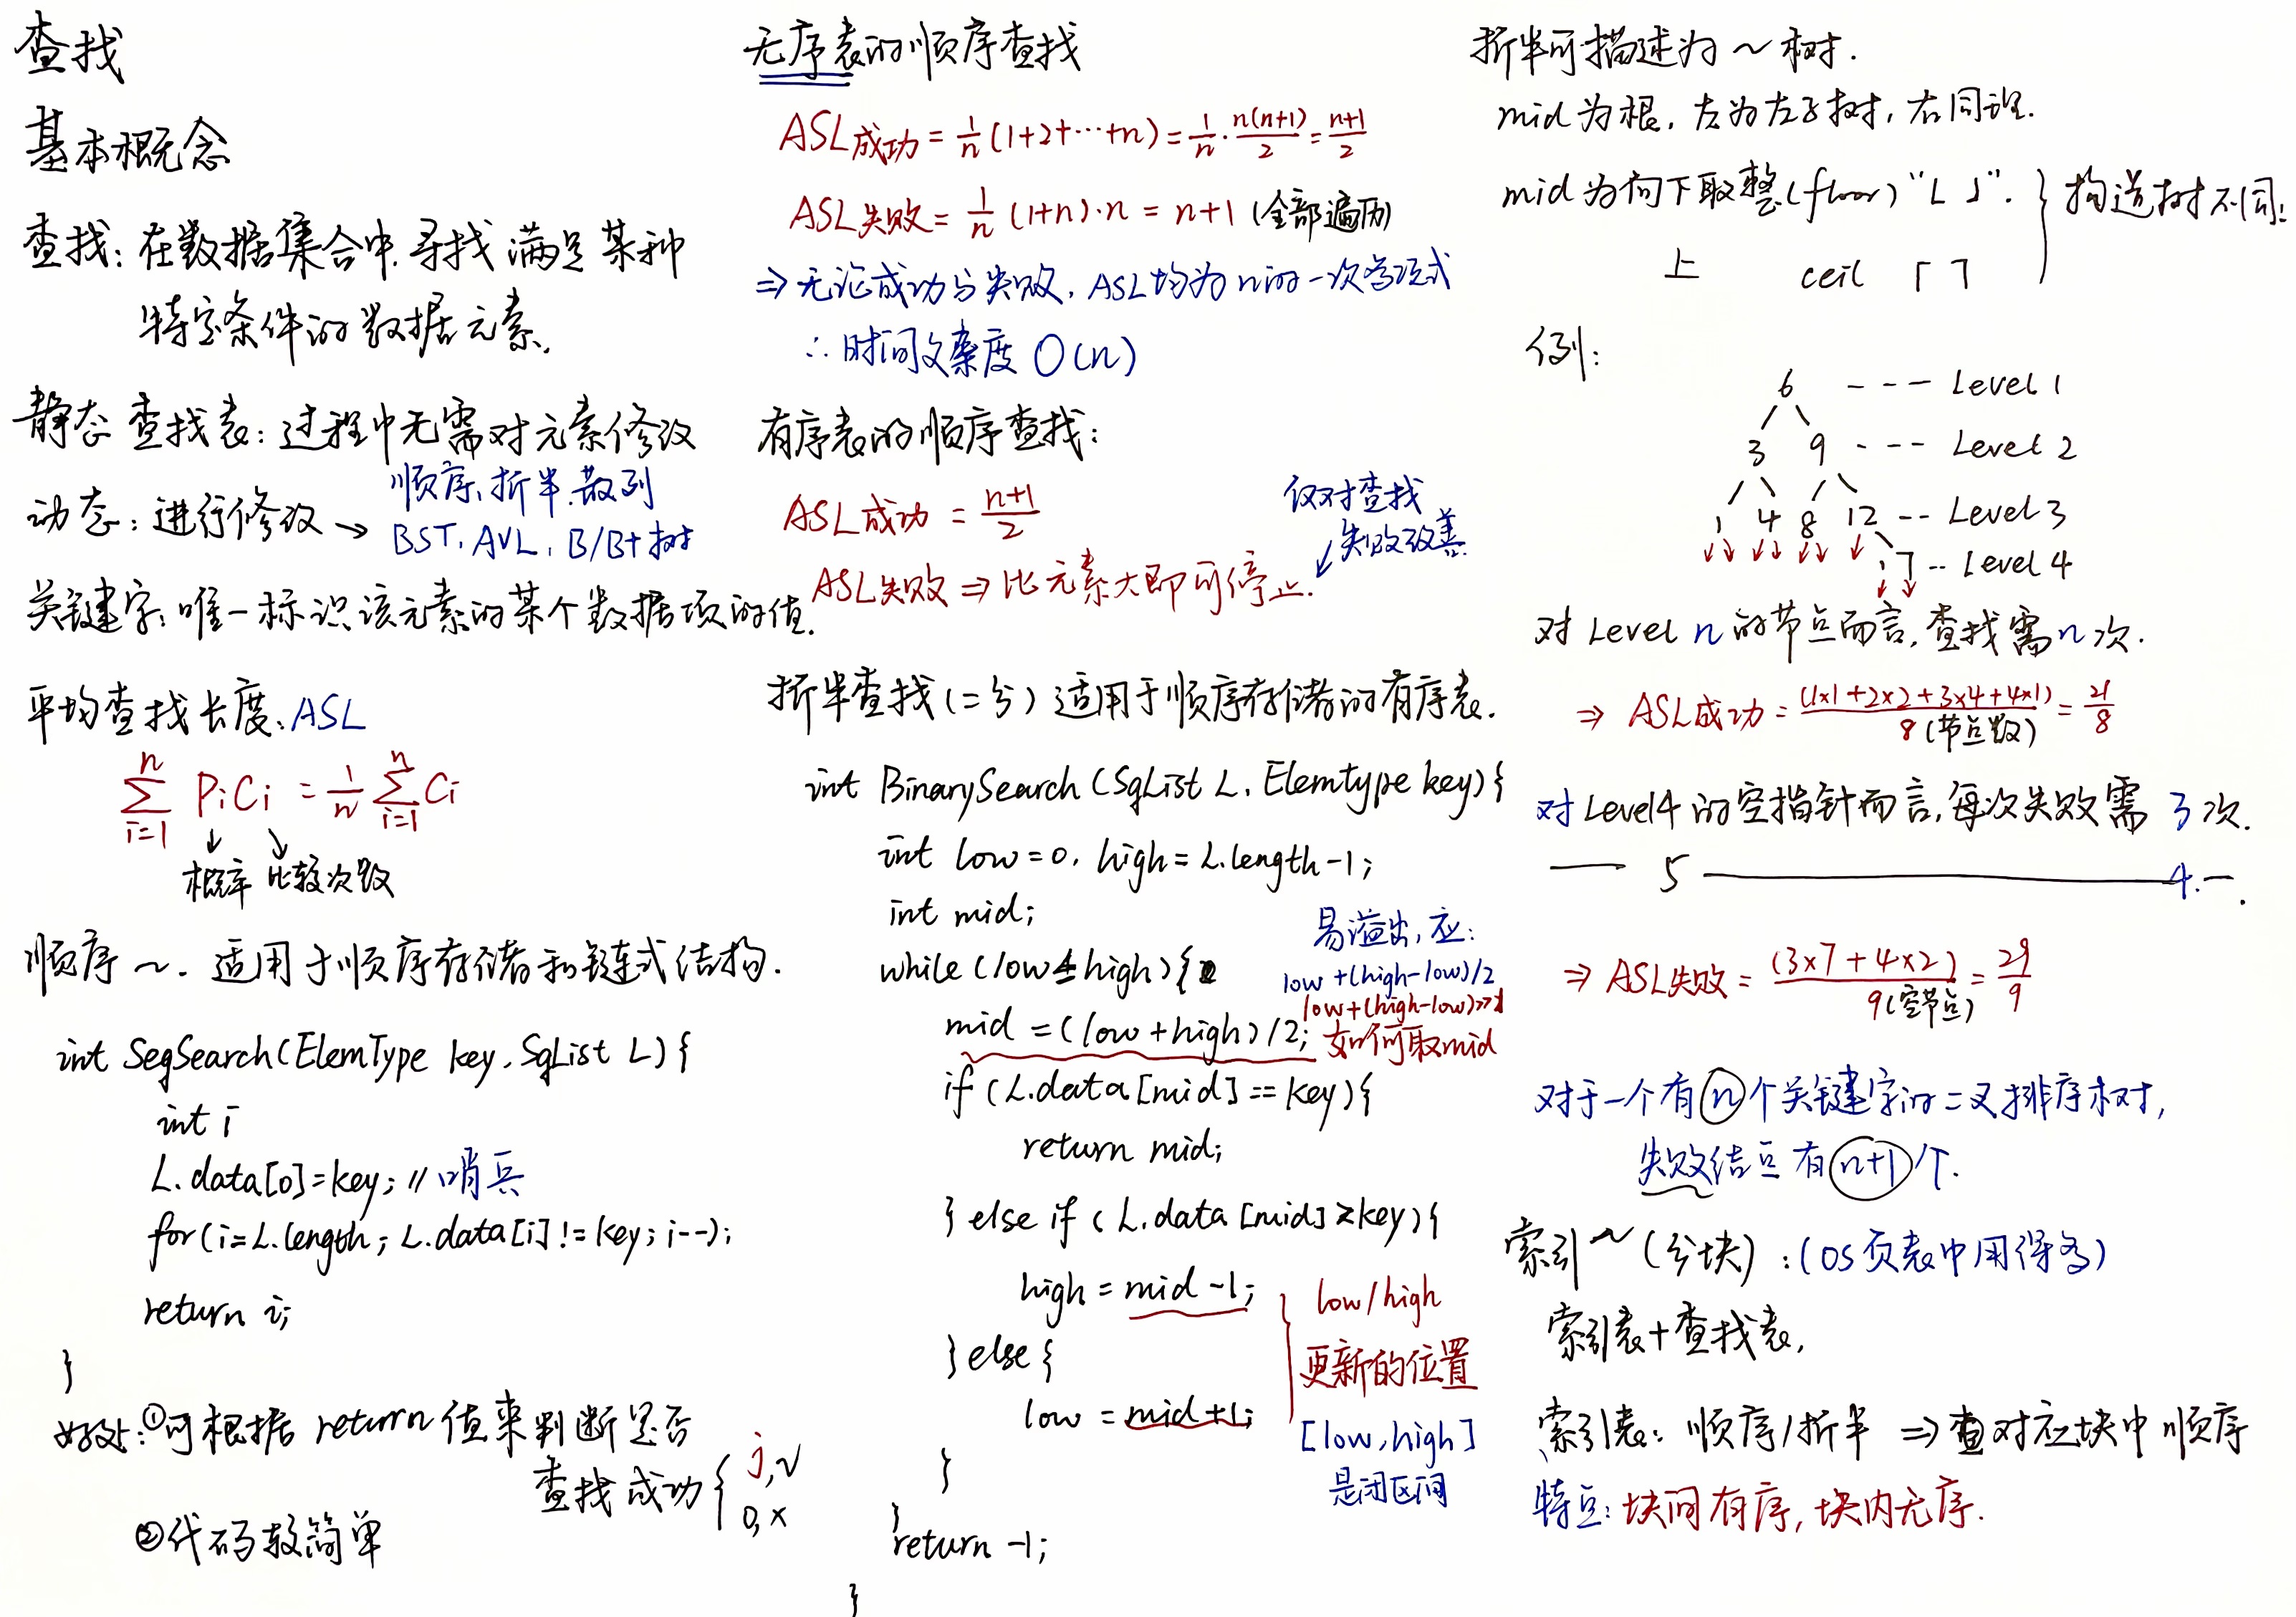 查找
基本概念
查找：在数据集合中寻找满足某种
特定条件的数据元素.
静态查找表：过程中无需对元素修改
动态：进行修改 →
顺序、折半、散列
BST, AVL, B/B+树
关键字：唯一标识该元素的某个数据项的值.
平均查找长度：ASL
\sum_{i=1}^{n} PiCi = \frac{1}{n} \sum_{i=1}^{n} Ci
↓ ↘
概率 比较次数
顺序~. 适用于顺序存储和链式结构.
int SeqSearch(ElemType key, SqList L){
int i
L.data[0]=key; // 哨兵
for(i=L.length; L.data[i]!=key; i--);
return i;
}
好处：①可根据return值来判断是否
查找成功{ i,√
0,×
②代码较简单
无序表的顺序查找
ASL成功 = \frac{1}{n}(1+2+⋯+n) = \frac{1}{n}·\frac{n(n+1)}{2} = \frac{n+1}{2}
ASL失败 = \frac{1}{n}(1+n)·n = n+1 (全部遍历)
⇒ 无论成功与失败, ASL均为n的一次多项式
∴ 时间复杂度 O(n)
有序表的顺序查找：
ASL成功 = \frac{n+1}{2}
仅对查找
失败改善.
ASL失败 ⇒ 比元素大即可停止.
折半查找(二分) 适用于顺序存储的有序表.
int BinarySearch (SqList L, Elemtype key){
int low=0, high=L.length-1;
int mid;
while (low≤high){
易溢出, 应：
low+(high-low)/2
low+(high-low)>>1
mid = (low+high)/2;
如何取mid
if (L.data[mid]==key){
return mid;
} else if (L.data[mid]>key){
high = mid-1;
} else {
low = mid+1;
low/high
更新的位置
[low,high]
是闭区间
}
}
return -1;
}
折半可描述为~树.
mid为根, 左为左子树, 右同理.
mid为向下取整(floor)"⌊ ⌋".
上 ceil ⌈ ⌉
} 构造树不同;
例：
6 --- Level 1
3 9 --- Level 2
1 4 8 12 -- Level 3
17 -- Level 4
对Level n的节点而言, 查找需n次.
⇒ ASL成功 = \frac{(1×1+2×2+3×4+4×1)}{8(节点数)} = \frac{21}{8}
对Level4的空指针而言, 每次失败需 3次.
— 5 ——— 4.—.
⇒ ASL失败 = \frac{(3×7+4×2)}{9(空节点)} = \frac{29}{9}
对于一个有n个关键字的二叉排序树,
失败结点有n+1个.
索引~(分块)：(OS页表中用得多)
索引表+查找表,
索引表：顺序/折半 ⇒ 查对应块中顺序
特点：块间有序, 块内无序.